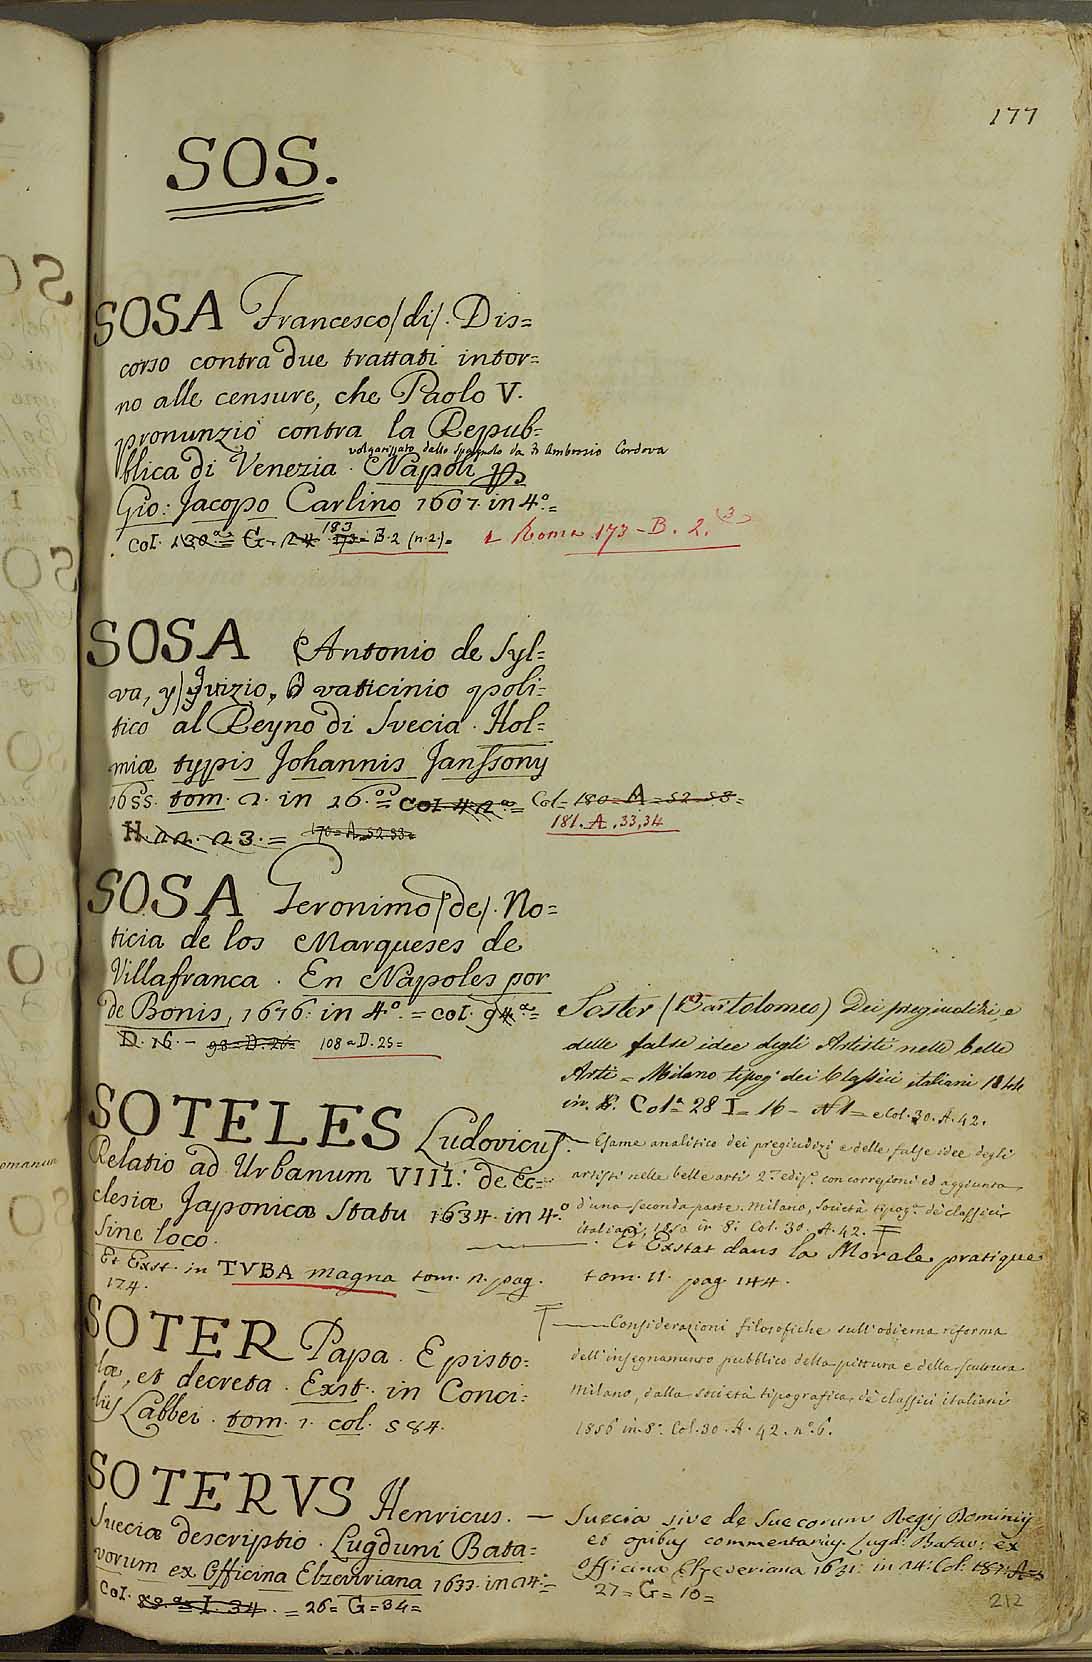 177
SOS.
SOSA Francesco /di/. Dis=
corso contra due trattati intor=
no alle censure, che Paolo V.
pronunziò contra la Repub=
blica di Venezia. Napoli
volgarizzato dallo spagnolo da Ambrosio Cordova
Gio: Jacopo Carlino 1607. in 4.º=
Col. 130.ª= G. 24. 183 173= B. 2 (n. 2)=
Roma 173 - B. 2. 3
SOSA (Antonio de Syl=
va, y) Juizio, ò vaticinio poli=
tico al Reyno di Svecia. Hol=
miæ typis Johannis Janssony
1655. tom. 2. in 26.º= Col. 42ª=
Col= 180= A= 52-58=
181. A. 33,34
H. 22. 23.= 170= A. 52 53=
SOSA Geronimo /de/. No=
ticia de los Marqueses de
Villafranca. En Napoles por
de Bonis, 1676. in 4.º= col. 94ª=
D. 16.- 98= D. 26= 108= D. 25=
Soster (Bartolomeo) Dei pregiudizi, e
delle false idee degli Artisti nelle belle
Arti= Milano tipog. dei Classici italiani 1844
in 8º. Colª 28 I= 16- e Col. 30. A. 42.
SOTELES Ludovicus.
Relatio ad Urbanum VIII: de Ec=
clesiæ Japonicæ Statu 1634. in 4.º
Sine loco.
Et Exst. in TVBA magna tom. 2. pag.
174.
— Esame analitico dei pregiudizi e delle false idee degli
artisti nelle belle arti 2.ª ediz.e con correzioni ed aggiunta
d'una seconda parte. Milano, società tipog.ª di classici
italiani, 1850 in 8º. Col. 30. A. 42.
Et Exstat dans la Morale pratique
tom. 11. pag. 144.
SOTER Papa. Episto=
læ, et decreta. Exst. in Conci=
liis Labbei. tom. 1. col. 584.
— Considerazioni filosofiche sull'odierna riforma
dell'insegnamento pubblico della pittura e della scultura
Milano, dalla società tipografica, di classici italiani
1856 in 8º. Col. 30. A. 42. nº. 6.
SOTERVS Henricus.
Sueciæ descriptio. Lugduni Bata=
vorum ex Officina Elzeviriana 1633. in 24=
Col. 89.ª= I. 34.= 26= G= 34=
— Suecia sive de Suecorum Regis Dominiis
et opibus commentarius. Lugd. Batav: ex
Officina Elzeveriana 1631: in 24: Col. 187: A=
27= G= 10=
212